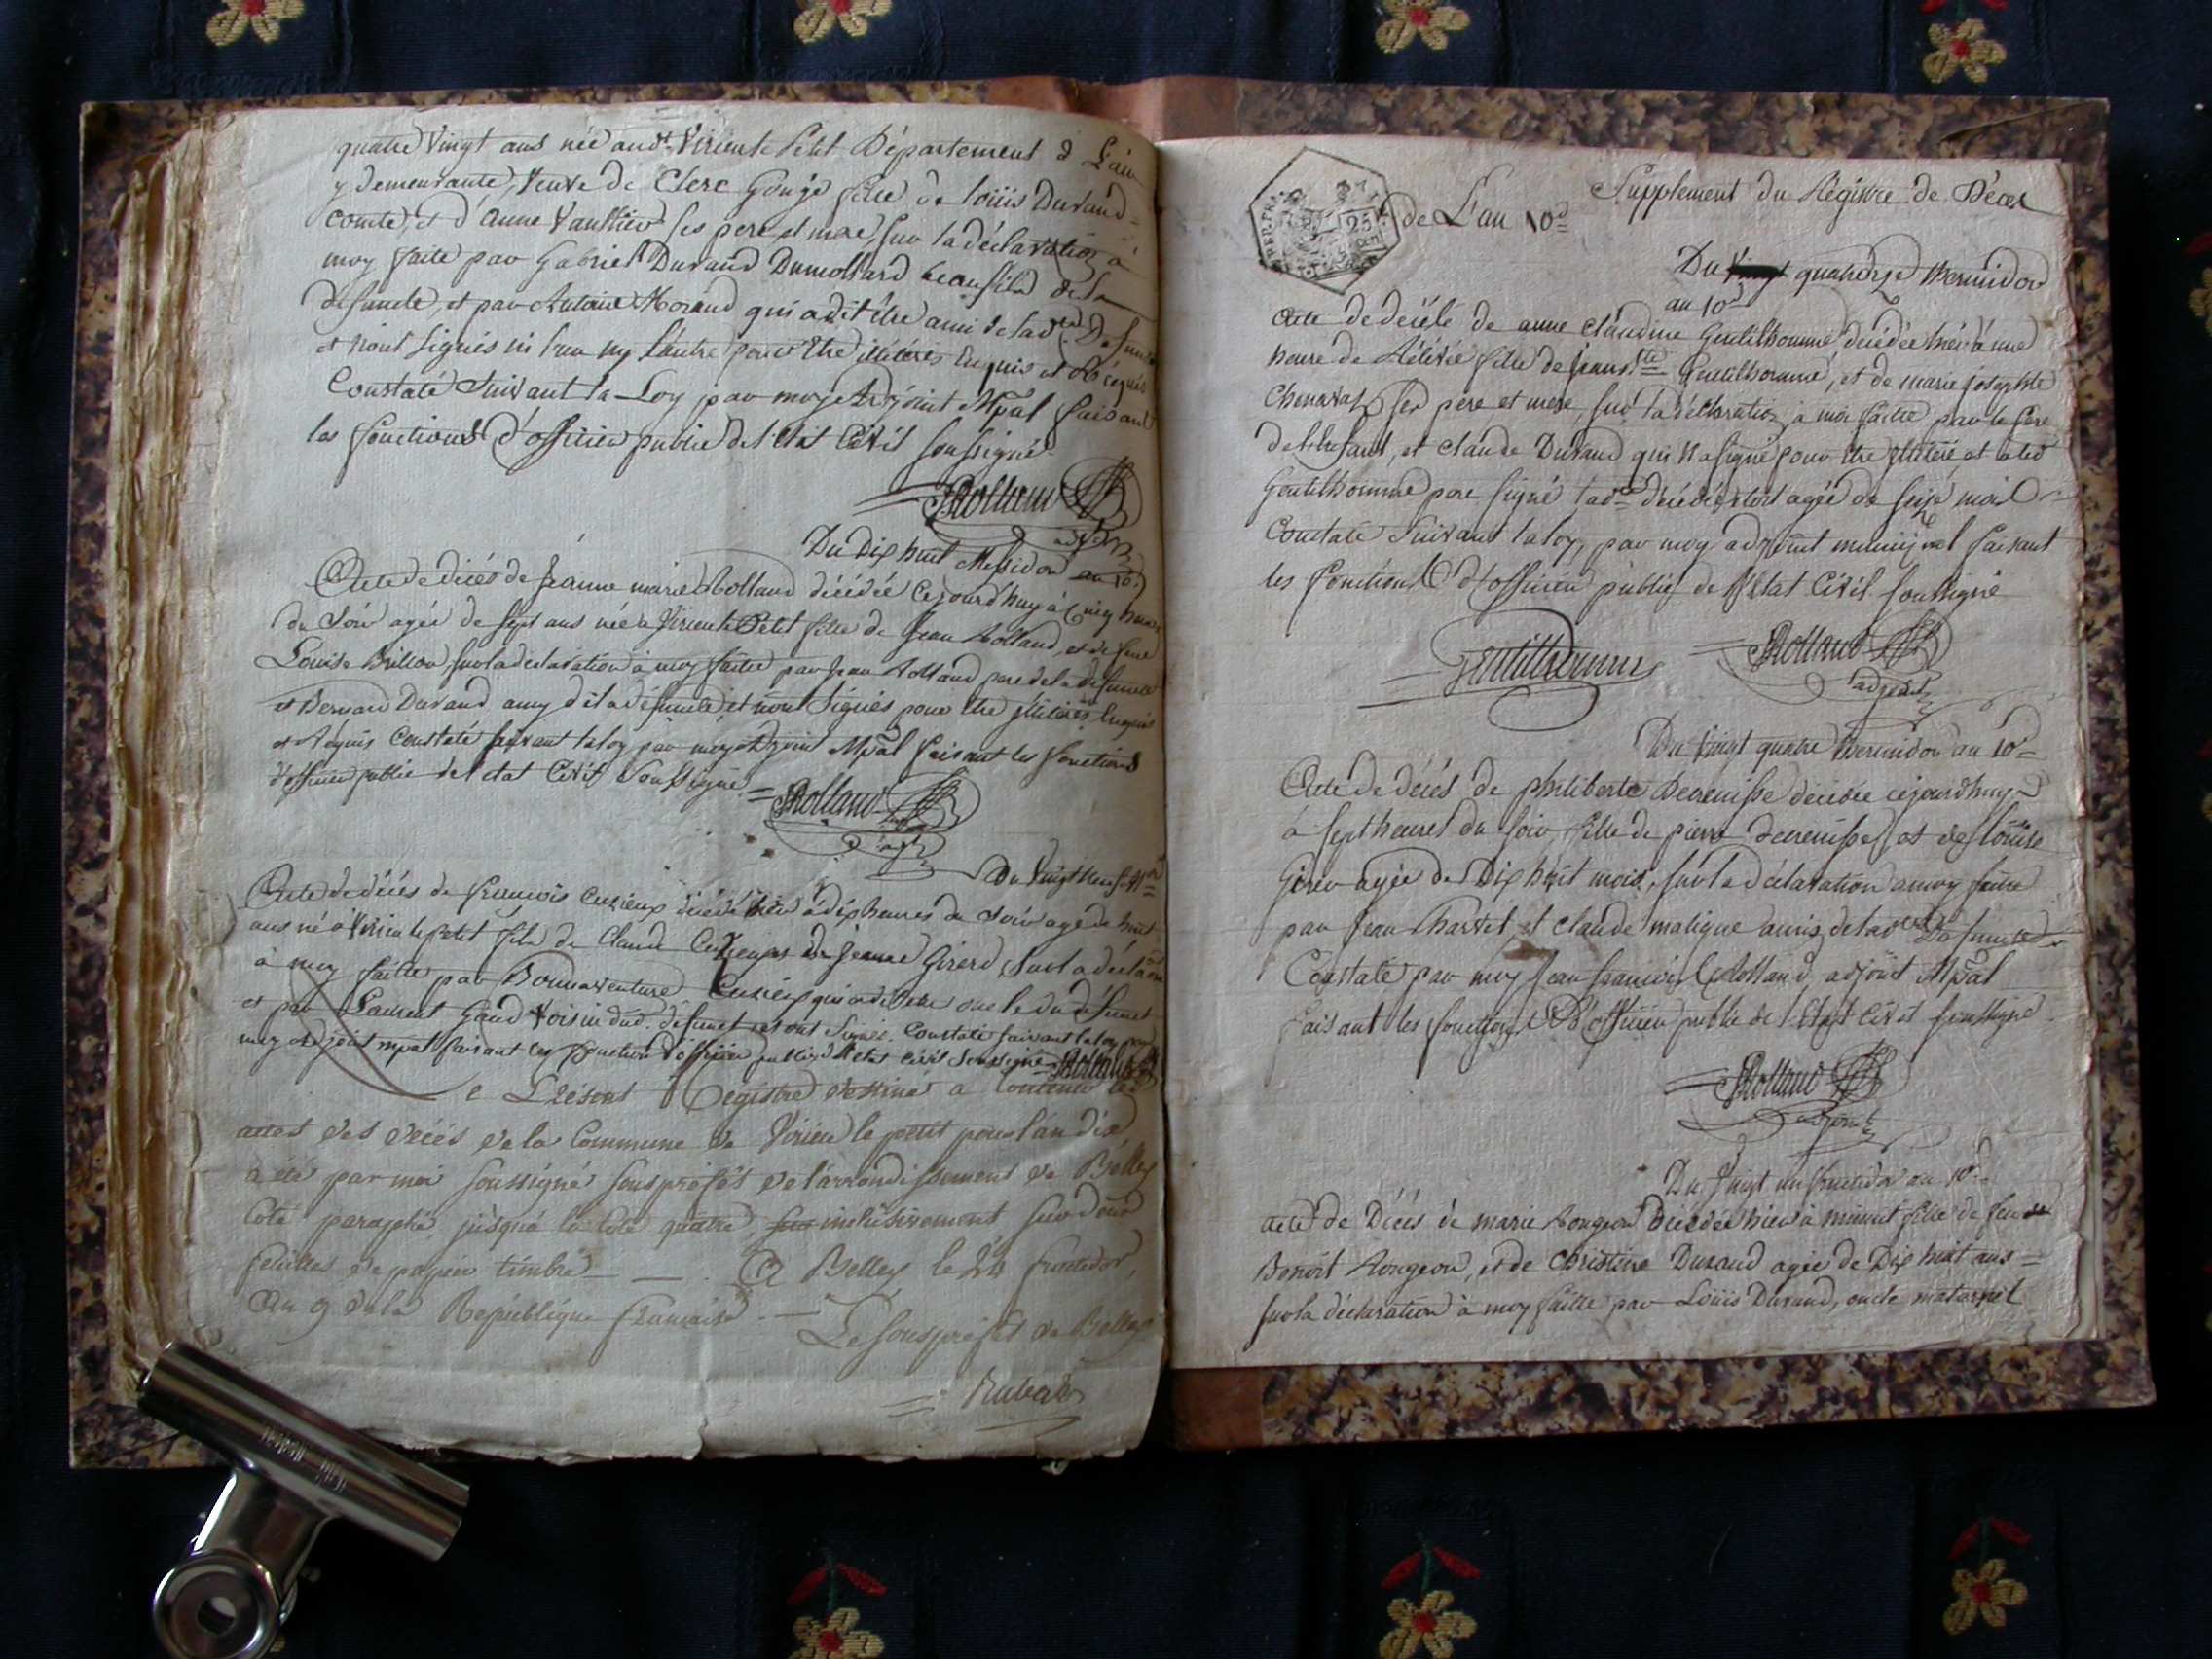 quatre Vingt ans née aud.t Virieu le Petit Département d L'ain
y demeurante, Veuve de Clerc Gouje fille de loüis Durand=
comte, et d'Anne Vauthier ses pere et mere, sur la déclaration à
moy faite par Gabriel Durand Dumollard beaufils de la
defuncte, et par Antoine Morand qui a dit être ami de lad.te Defuncte
et n'ont signés ni l'un ny l'autre pour Etre illiterés Enquis et
Constaté Suivant la Loy par moy Adjoint Mpãl faisant
les fonctions d'officier public de l'Etat Civil soussigné
JRolland
adjt
Du Dix huit Messidor an 10.
Acte de décés de Jeanne marie Rolland décédée Cejourd'huy à Cinq heures
du Soir agée de sept ans née à Virieu le Petit fille de Jean Rolland, et de feue
Louise Brillon, sur la déclaration à moy faitte par Jean Rolland pere de la defuncte
et Bernard Durand amy de la défuncte et n'ont Signés pour Etre illiterés Enquis
et Réquis Constaté suivant la loy par moy Adjoint Mpãl faisant les fonctions
d'officier public de l'etat Civil Soussigné =
JRolland
adjt
Du Vingt neuf M.or
Acte de décés de francois Cuzieux décédé hier à dix heures du Soir agé de huit
ans né à Virieu le petit fils de Claude Cuzieux et de Jeanne Girerd, Sur la déclaõn
à moy faitte par Bonnaventure Cuzieux qui a dit Etre oncle du défunct
et par Laurent Gaud Voisin dud. defunct et ont Signés. Constaté suivant la loy par
moy adjoint mpãl faisant les fonctions d'officier public de l'Etat Civil Soussigné = JRolland
Le Présent Registre destiné a Contenir les
actes des décés de la Commune de Virieu le petit pour l'an dix
a été par moi Soussigné Sousprefêt de l'arrondissement de Belley
Coté paraphé jusqu'a la Cote quatre, inclusivement sur deux
feüilles de papier timbré — . A Belley le 24 fructidor,
An 9 de la République francaise . —
Le Sousprefêt de Belley
= Rubat
25
Supplement du Régistre de Déces
de L'an 10.e
Du quatorze thermidor
an 10.e
Acte de décés de anne claudine Gentilhomme décédée hier à une
heure de Rélévée fille de jean b.te Gentilhomme, et de marie josephte
Chenavaz ses pere et mere, sur la déclaration à moi faitte par le Père
de l'Enfant, et claude Durand qui N'a signé pour Etre illiteré et a led
Gentilhomme pere signé lad.te décédée étoit agée de seize mois
Constaté suivant la loy, par moy adjoint municipal faisant
les fonctions d'officier public de l'Etat Civil soussigné
Gentilhomme = JRolland
adjoint
Du Vingt quatre thermidor an 10.e
Acte de décés de philiberte Decrenisse décédée cejourd'huy
à sept heures du soir, fille de pierre decrenisse, et de loüise
Girer agée de Dix huit mois, sur la déclaration a moy faitte
par Jean Charvet et claude maligne amis de lad.te Défuncte
Constaté par moy Jean francois Rolland adjoint Mpãl
faisant les fonctions d'officier public de l'Etat Civil soussigné
JRolland
adjoint
Du Vingt un fructidor an 10.e
acte de Décés de marie Rougeon Décédée hier à minuit fille de feu
Benoît Rongeon, et de Christine Durand agée de Dix huit ans =
sur la déclaration à moy faitte par Loüis Durand, oncle maternel